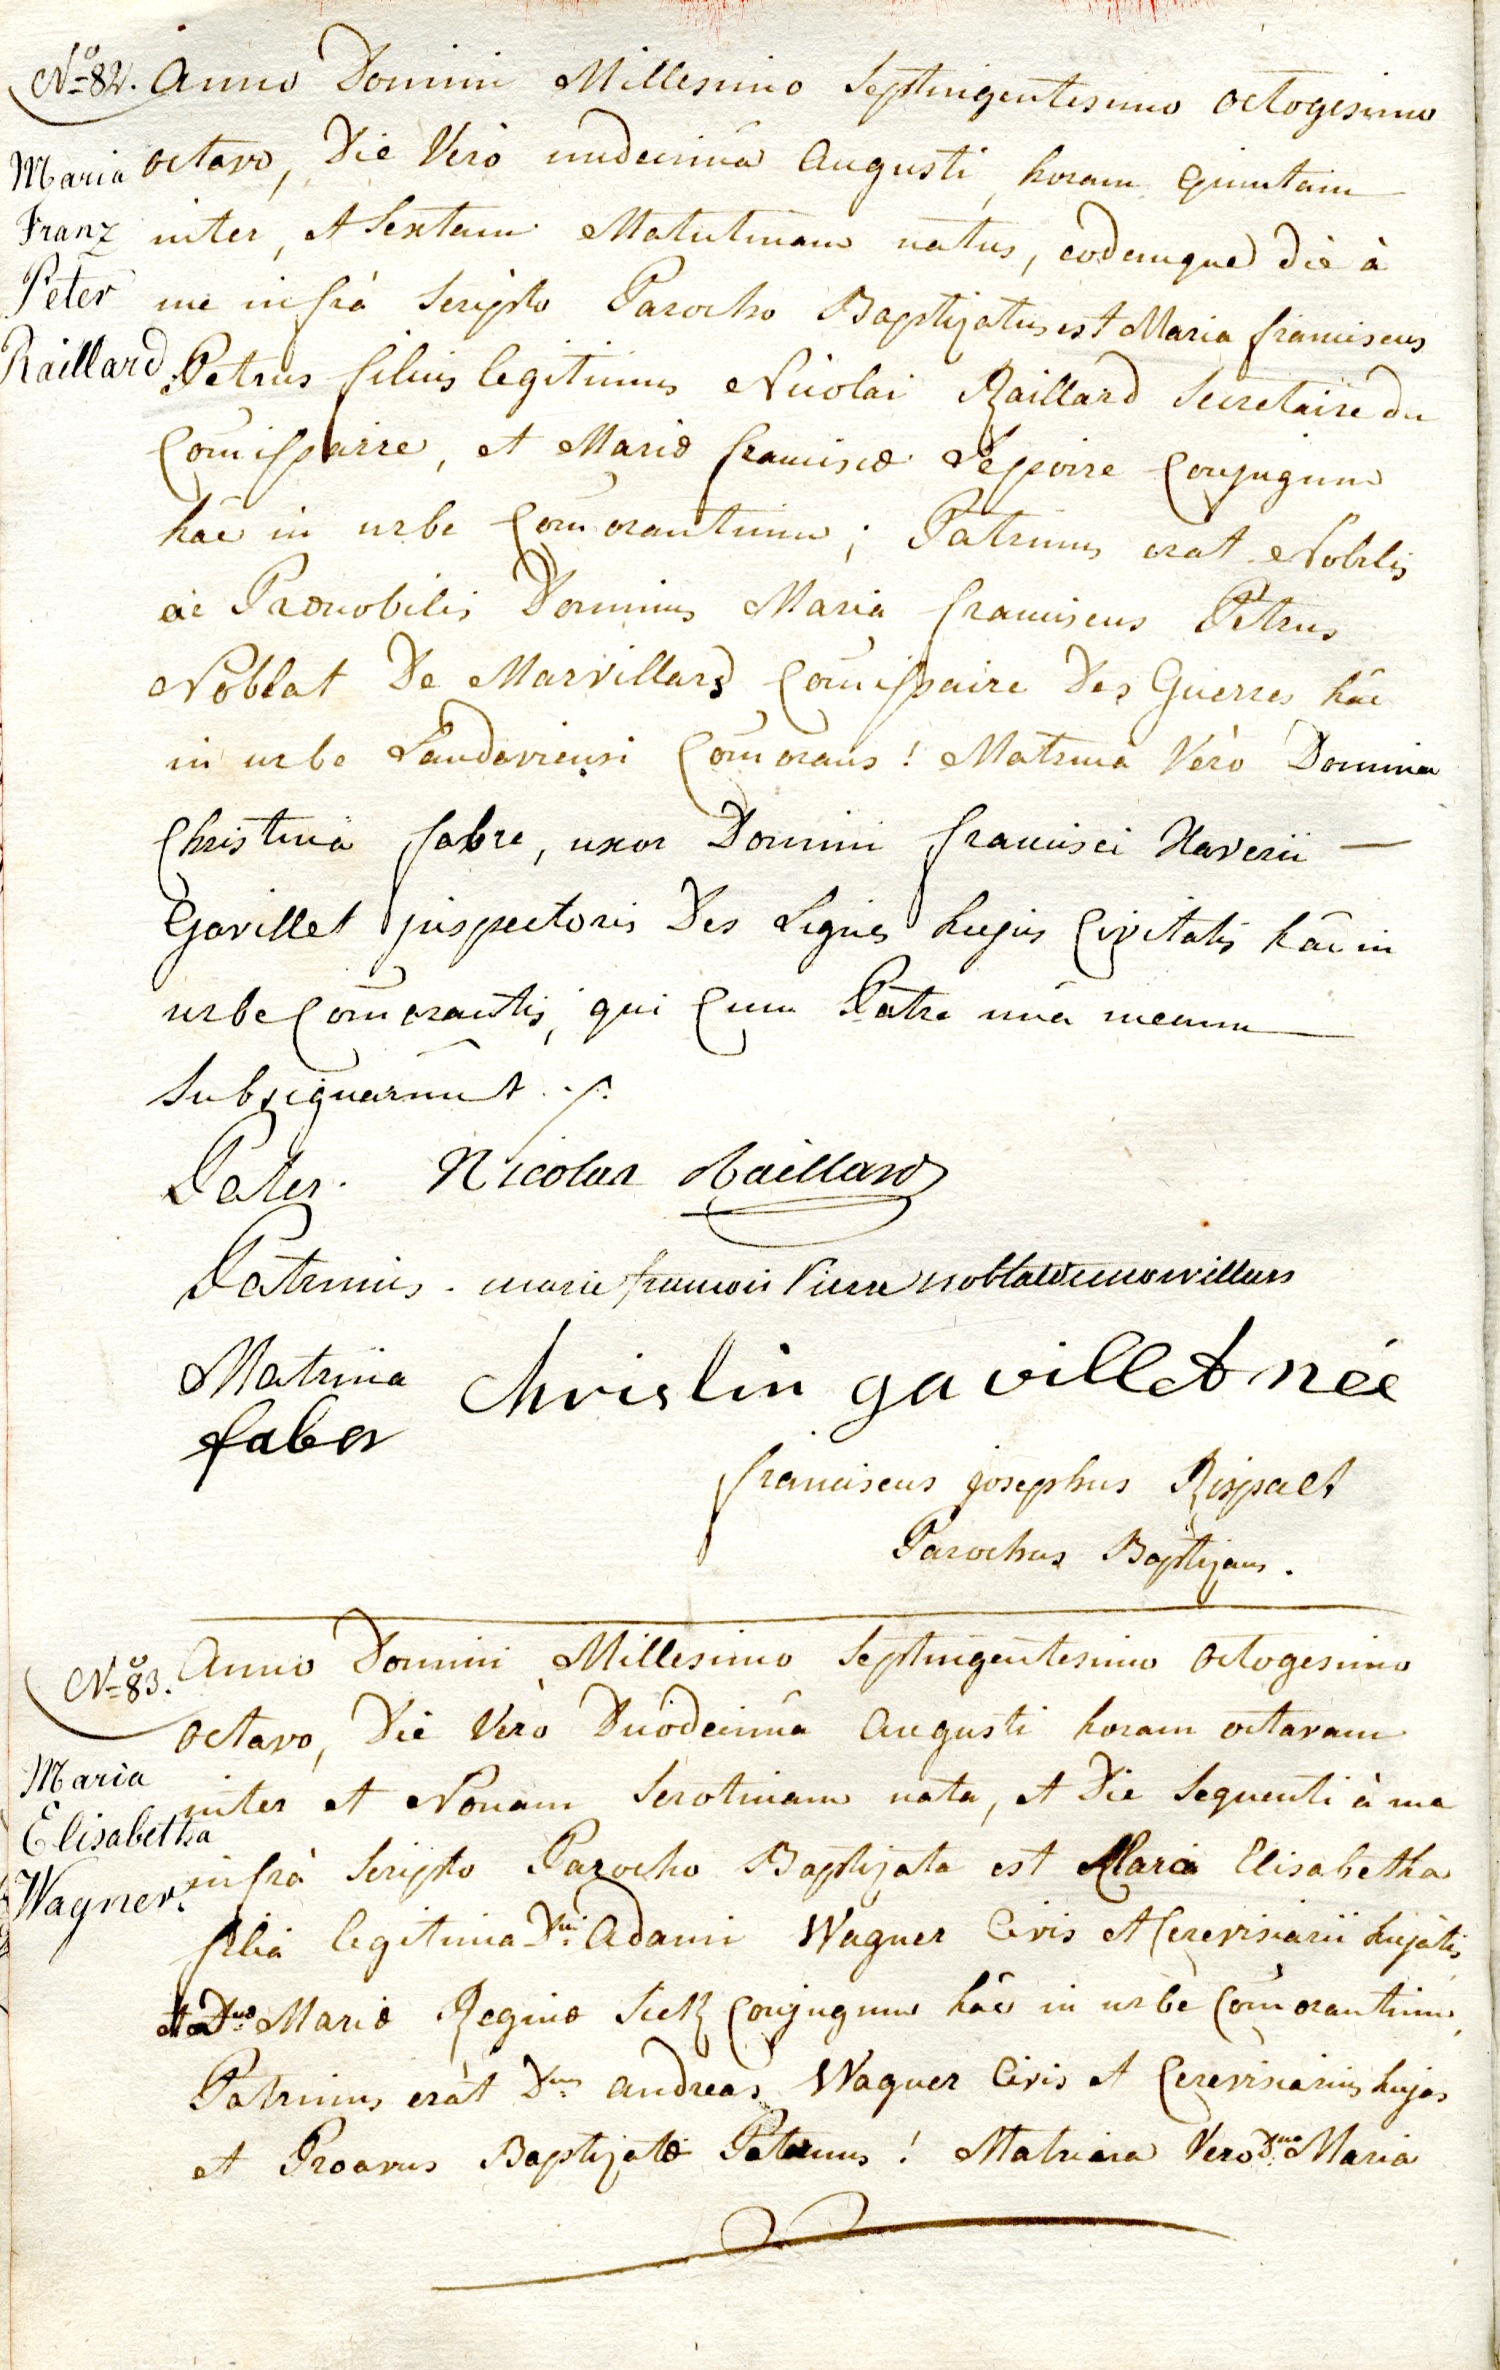 No 82. Anno Domini Millesimo Septingentesimo octogesimo
Maria octavo, Die Verò undecimâ Augusti, horam Quintam
Franz inter, et Sextam Matutinam natus, eodemque diè à
Peter me infrà Scripto Parocho Baptizatus est Maria franciscus
Raillard Petrus filius legitimus Nicolai Raillard Secretaire du
Com̄issairre, et Mariæ franciscæ Lejoire Conjugum
hâc in urbe Com̄orantium; Patrinus erat Nobilis
ac Prænobilis Dominus Maria franciscus Petrus
Noblat De Marvillars Com̄issaire Des Guerres hâc
in urbe Landaviensi Com̄orans! Matrina Verò Domina
Christina fabre, uxor Domini francisci Xaverii —
Gavillet juspectoris Des Lignes hujus Civitatis hâc in
urbe Com̄orantis, qui Cum Patre unà mecum
Subsignarunt.
Pater. Nicolas Raillard
Patrinus. marie francois Pierre noblatdemorvillars
Matrina Christin gavillet née
faber
franciscus josephus Rispact
Parochus Baptizans.
No 83. Anno Domini Millesimo Septingentesimo octogesimo
octavo, Diè Verò Duodecimâ Augusti horam octavam
Maria inter et Nonam Serotinam nata, et Die Sequenti à me
Elisabetha infrà Scripto Parocho Baptizata est Maria Elisabetha
Wagner. filia legitima Dni Adami Wagner Civis et Cerevisiarii hujatis,
et Dnæ Mariæ Reginæ Siek Conjugum hâc in urbè Com̄orantium,
Patrinus erat Dnus Andreas Wagner Civis et Cerevisiarius hujas
et Proavus Baptizatæ Paternus! Matrina Vero Dna Maria